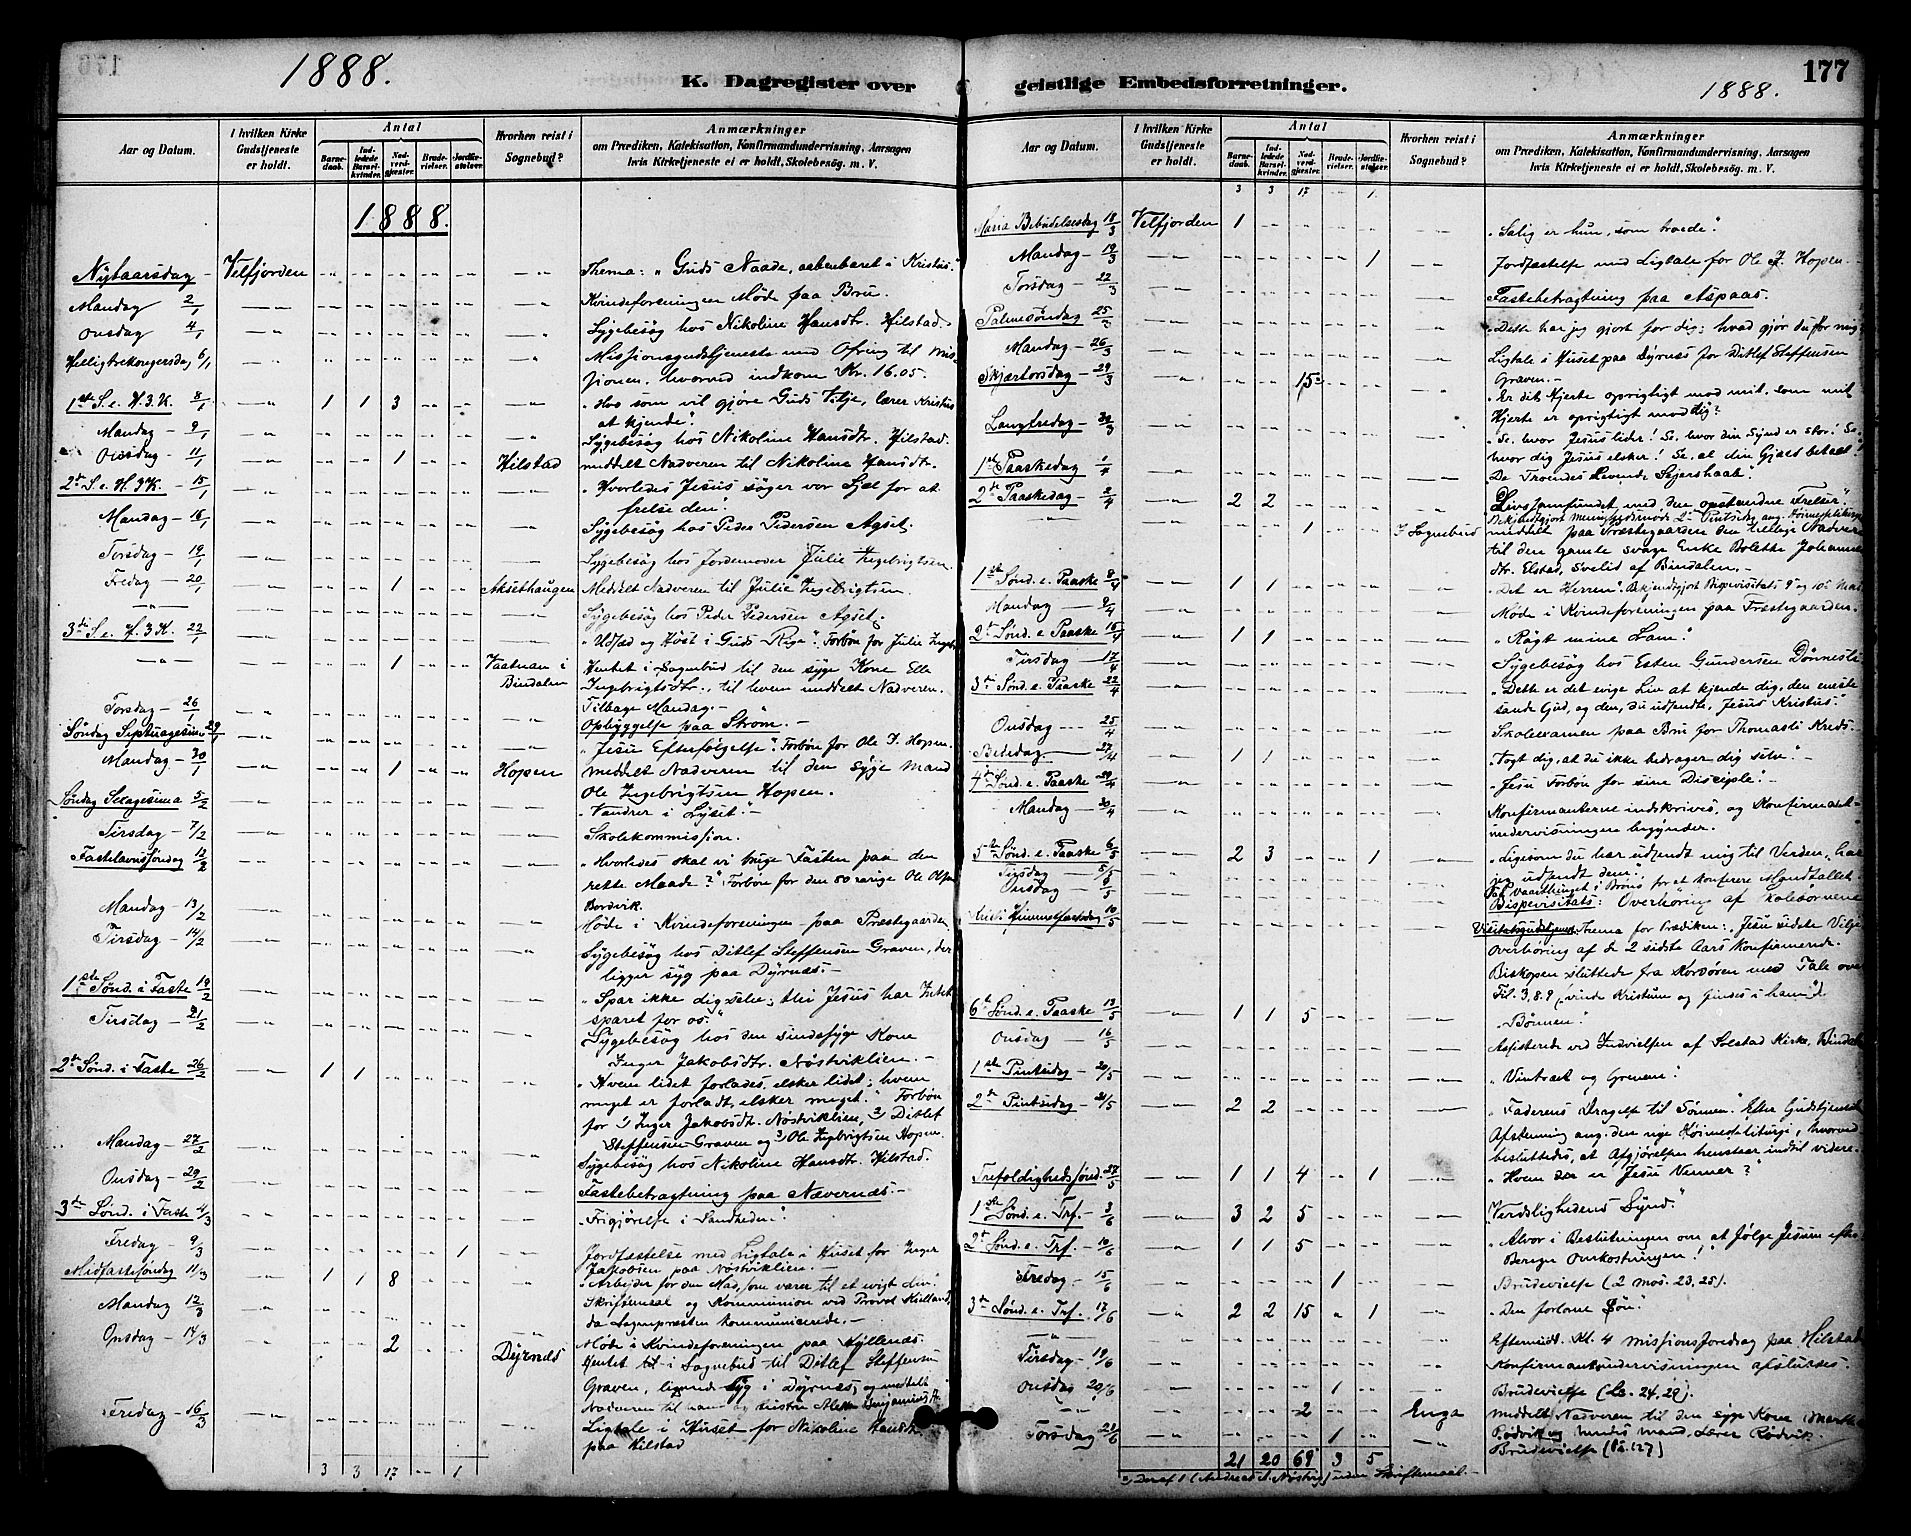 176
1888.
K. Dagregister over
Aar og Datum.
I hvilken Kirke Gudstjeneste er holdt.
Antal
Barnedaab.
Indledede Barselkvinder.
Nadverdgjester.
Brudevielser.
Jordfæstelser.
Hvorhen reist i Sognebud?
Anmærkninger
om Prædiken, Katekisation, Konfirmandundervisning, Aarsagen
hvis Kirketjeneste ei er holdt, Skolebesög. m. V.
1888.
Nytaarsdag - Velfjorden Thema: "Guds Naade, aabenbaret i Kristus."
Mandag 2/1 Kvindeforeningen Møde paa Bru.
Onsdag 4/1 Sygebesøg hos Nikoline Hansdtr. Hilstad.
Helligtrekongersdag 6/1 Missionsgudstjeneste med Ofring til Mis-
sionen, hvorved indkom Kr. 16.05.
1ste S. e. H. 3 K. 8/1 1 1 3 "Hvo som vil gjøre Guds Vilje, lærer Kristus
at kjende".
Mandag - 9/1 Sygebesøg hos Nikoline Hansdtr. Hilstad.
Onsdag - 11/1 1 Hilstad meddelt Nadveren til Nikoline Hansdtr.
2den S. e. H. 3 K. - 15/1 "Hvorledes Jesus søger vor Sjæl for at
frelse den".
Mandag - 16/1 Sygebesøg hos Peder Pedersen Agset.
Torsdag - 19/1 Sygebesøg hos Jordemoder Julie Ingebrigtsen.
Fredag - 20/1 1 Aksethaugen Meddelt Nadveren til Julie Ingebrigtsen.
Sygebesøg hos Peder Pedersen Agset.
3die S. e. H. 3 K. 22/1 "Udsæd og Høst i Guds Rige". Forbøn for Julie
1 Vaatnan i Bindalen Hentet i Sognebud til den syge Kone Elle
Ingebrigtsdtr., til hvem meddelt Nadveren.
Tilbage Mandag.
Torsdag - 26/1 Opbyggelse paa Strøm.
Søndag Septuagesima 29/1 "Jesu Efterfølgelse". Forbøn for Ole I. Hopen.
Mandag - 30/1 1 Hopen meddelt Nadveren til den syge Mand
Ole Ingebrigtsen Hopen.
Søndag Sexagesima 5/2 "Vandrer i Lyset".
Tirsdag - 7/2 Skolekommission.
Fastelavnssøndag 12/2 "Hvorledes skal vi bruge Fasten paa den
rette Maade?" Forbøn for den 80 aarige Ole Olsen
Bordvik.
Mandag - 13/2 Møde i Kvindeforeningen paa Præstegaarden
Tirsdag - 14/2 Sygebesøg hos Ditlef Steffensen Graven, der
ligger syg paa Dyrnæs.
1ste Sønd. i Faste 19/2 "Spar ikke dig selv; thi Jesus har Intet
sparet for os."
Tirsdag - 21/2 Sygebesøg hos den sindssyge Kone
Inger Jakobsdtr. Nøstviklien.
2den Sønd. i Faste 26/2 1 1 "Hvem lidet forlades, elsker lidet; hvem
meget er forladt, elsker meget." Forbøn
for 1) Inger Jakobsdtr. Nøstviklien, 2) Ditlef
Steffensen Graven og 3) Ole Ingebrigtsen Hopen.
Mandag - 27/2 Sygebesøg hos Nikoline Hansdtr. Hilstad.
Onsdag - 29/2 Fastebetragtning paa Nævernæs.
3die Sønd. i Faste 4/3 "Frigjørelse i Sandheden".
Fredag - 9/3 1 Jordfæstelse med Ligtale i Huset for Inger
Jakobsen paa Nøstviklien.
Midfastesøndag 11/3 1 1 8 "Arbeider for den Mad, som varer til et evigt Liv."
Skriftemaal og Kommunion ved Provst Kielland,
da Sognepresten kommuniserede.
Mandag 12/3 Møde i Kvindeforeningen paa Hyllenæs.
Onsdag - 14/3 2 Dyrnæs Hentet i Sognebud til Ditlef Steffensen
Graven, liggende syg i Dyrnæs, og meddelt
Nadveren til ham og Hustru Alette Benjaminsd.
Fredag - 16/3 Ligtale i Huset for Nikoline Hansdtr.
paa Hilstad
3 3 17 1
geistlige Embedsforretninger.
1888.
177
Aar og Datum.
I hvilken Kirke Gudstjeneste er holdt.
Antal
Barnedaab.
Indledede Barselkvinder.
Nadverdgjester.
Brudevielser.
Jordfæstelser.
Hvorhen reist i Sognebud?
Anmærkninger
om Prædiken, Katekisation, Konfirmandundervisning, Aarsagen
hvis Kirketjeneste ei er holdt, Skolebesög. m. V.
3 3 17 1
Maria Bebudelsesdag 18/3 Velfjorden 1 "Salig er hun, som troede".
Mandag - 19/3 1 Jordfæstelse med Ligtale for Ole I. Hopen.
Torsdag - 22/3 Fastebetragtning paa Aspaas.
Palmesøndag 25/3 "Dette har jeg gjort for dig; hvad gjør du for mig"
Mandag - 26/3 Ligtale i Huset paa Dyrnæs for Ditlef Steffensen
Graven.
Skjærtorsdag - 29/3 15 "Er dit Hjerte oprigtigt mod mit, som mit
Hjerte er oprigtigt mod dig"?
Langfredag - 30/3 "Se, hvor Jesus lider! Se, hvor din Synd er stor! Se,
hvor dig Jesus elsker! Se, at din Gjæld betalt!"
1ste Paaskedag 1/4 "De Troendes levende Seiershaab."
2den Paaskedag - 2/4 2 2 "Livssamfundet med den opstandne Frelser".
1 I Sognebud meddelt paa Præstegaarden den hellige Nadvere
til den gamle svage Enke Bolette Johannes-
dtr. Elstad, Svelid af Bindalen.
1ste Sønd. e. Paaske 8/4 1 1 "Det er Herren". Bekjendtgjort Bispevisitats 9de og 10de Mai
Mandag - 9/4 Møde i Kvindeforeningen paa Præstegaarden.
2den Sønd. e. Paaske 15/4 1 1 "Røgt mine Lam".
Tirsdag - 17/4 Sygebesøg hos Esten Gundersen
3die Sønd. e. Paaske 22/4 "Dette er det evige Liv at kjende dig, den eneste
sande Gud, og den, du udsendte, Jesus Kristus".
Onsdag - 25/4 Skoleexamen paa Bru for Kreds.
Bededag - 27/4 1 1 "Vogt dig, at du ikke bedrager dig selv".
4de Sønd. e. Paaske 29/4 "Jesu Forbøn for sine Disciple".
Mandag - 30/4 Konfirmanterne indskrives, og Konfirmant-
undervisningen begynder.
5te Sønd. e. Paaske 6/5 2 3 1 "Ligesom du har udsendt mig til Verden, har
jeg udsendt dem".
Tirsdag - 8/5 i Brønø for at konferere Mandtallet
Onsdag - 9/5 Bispevisitats: Overhøring af Skolebørnene
Kristi Himmelfartsdag 10/5 Visitatsgudstjeneste. Thema for Prædiken: "Jesu sidste Vilje"
Overhøring af de 2 sidste Aars Konfirmerede.
Biskopen sluttede fra Kordøren med Tale over
Fil. 3, 8. 9 ("vinde Kristum og findes i ham").
6te Sønd. e. Paaske 13/5 1 1 5 "Bønnen".
Onsdag - 16/5 Assisterede ved Indvielsen af Solstad Kirke, Bindalen
1ste Pintsedag - 20/5 "Vintræet og Grenene".
2den Pintsedag - 21/5 2 2 "Faderens Dragelse til Sønnen". Efter Gudstjenesten
Afstemning ang. den nye Høimesseliturgi, hvorved
besluttedes, at Afgjørelsen henstaar indtil videre.
Trefoldighedssønd. 27/5 1 1 4 1 "Hvem der er Jesu Venner?"
1ste Sønd. e. Trf. - 3/6 3 2 5 "Verdslighedens Synd."
2den Sønd. e. Trf. - 10/6 1 1 5 "Alvor i Beslutningen om at følge Jesum efter.
Beregn Omkostningen!"
Fredag - 15/6 1 Brudevielse (2 Mos. 23, 25).
3die Sønd. e. Trf. - 17/6 2 2 15 1 "Den forlorne Søn".
Eftermidd. Kl. 4 Missionsforedrag paa Hilstad
Tirsdag - 19/6 Konfirmantundervisningen afsluttes.
Onsdag 20/6 1 Brudevielse (Lc. 24, 29).
2 Enga meddelt Nadveren til den syge Kone
Rødvik og hendes Mand, Lærer Rødvik.
Torsdag 21/6 1 Brudevielse (Ps. 127)
21 20 69 3 5